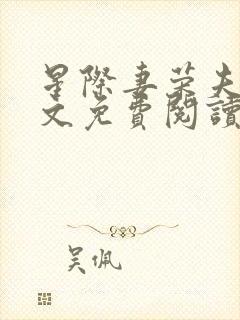 星際妻榮夫
文免費閱讀
吴佩